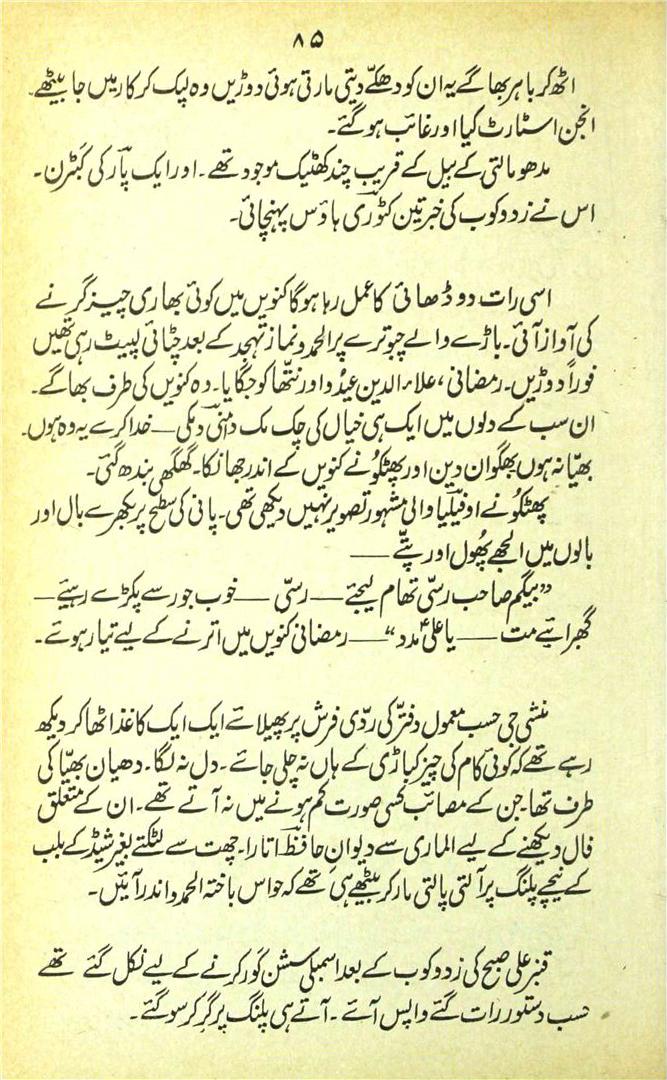 ۸۵
اٹھ کر باہر بھاگے یہ ان کو دھکّے دیتی مارتی ہوئی دوڑیں وہ لپک کر کار میں جا بیٹھے۔
انجن اسٹارٹ کیا اور غائب ہو گئے۔
مدھو مالتی کے بیل کے قریب چند کھٹیک موجود تھے۔ اور ایک پاَر کی کَبٹرن۔
اس نے زدوکوب کی خبر تین کٹوری ہاؤس پہنچائی۔
اسی رات دو ڈھائی کا عمل رہا ہوگا کنویں میں کوئی بھاری چیز گرنے
کی آواز آئی۔ باڑے والے چبوترے پر الحمدو نماز تہجد کے بعد چٹائی لپیٹ رہی تھیں
فوراً دوڑیں۔ رمضانی، علاء الدین عیدُو اور نتھّا کو جگایا۔ وہ کنویں کی طرف بھاگے۔
ان سب کے دلوں میں ایک ہی خیال کی چک مک دامنی دمکی — خدا کرے یہ وہ ہوں۔
بھیّا نہ ہوں بھگوان دین اور پھٹکوُ نے کنویں کے اندر جھانکا۔ گھگھی بندھ گئی۔
پھٹکوُ نے اوفیلیا والی مشہور تصویر نہیں دیکھی تھی۔ پانی کی سطح پر بکھرے بال اور
بالوں میں الجھے پھُول اور پتّے —
”بیگم صاحب رسّی تھام لیجئے — رسّی — خوب جور سے پکڑے رہیئے —
گھبرایئے مت — یا علیؑ مدد“ — رمضانی کنویں میں اترنے کے لیے تیار ہوئے۔
منشی جی حسب معمول دفتر کی ردّی فرش پر پھیلائے ایک ایک کاغذ اٹھا کر دیکھ
رہے تھے کہ کوئی کام کی چیز کباڑی کے ہاں نہ چلی جائے۔ دل نہ لگا۔ دھیان بھیّا کی
طرف تھا۔ جن کے مصائب کسی صورت کم ہونے میں نہ آتے تھے۔ ان کے متعلق
فال دیکھنے کے لیے الماری سے دیوانِ حافظؔ اتارا۔ چھت سے لٹکتے بغیر شیڈ کے بلب
کے نیچے پلنگ پر آلتی پالتی مار کر بیٹھے ہی تھے کہ حواس باختہ الحمدو اندر آئیں۔
قنبر علی صبح کی زدوکوب کے بعد اسمبلی سشن کَور کرنے کے لیے نکل گئے تھے
حسب دستور رات گئے واپس آئے۔ آتے ہی پلنگ پر گر کر سو گئے۔